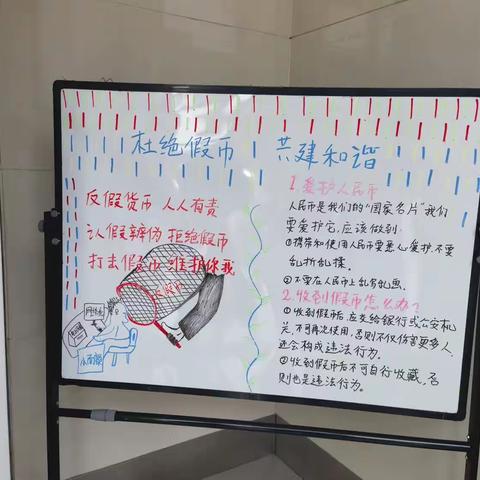 杜绝假币 共建和谐
反假货币 人人有责
认假辨伪 拒绝假币
打击假币 维护你我
1.爱护人民币
人民币是我们的"国家名片"我们
要爱护它,应该做到:
①携带和使用人民币要悉心爱护,不要
乱折乱揉.
②不要在人民币上乱写乱画.
2.收到假币怎么办?
①收到假币后,应交给银行或公安机
关,不可再次使用,否则不仅伤害更多人,
还会构成违法行为.
②收到假币后不可自行收藏,否
则也是违法行为.